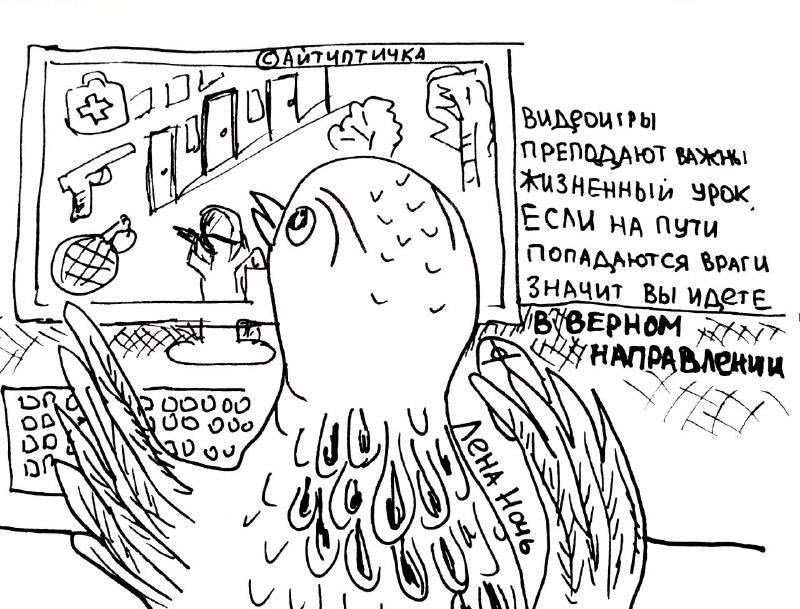 ©АЙТИПТИЧКА
ВИДЕОИГРЫ
ПРЕПОДАЮТ ВАЖНЫ
ЖИЗНЕННЫЙ УРОК.
ЕСЛИ НА ПУТИ
ПОПАДАЮТСЯ ВРАГИ
ЗНАЧИТ ВЫ ИДЕТЕ
В ВЕРНОМ
НАПРАВЛЕНИИ
ЛЕНА НОЧЬ